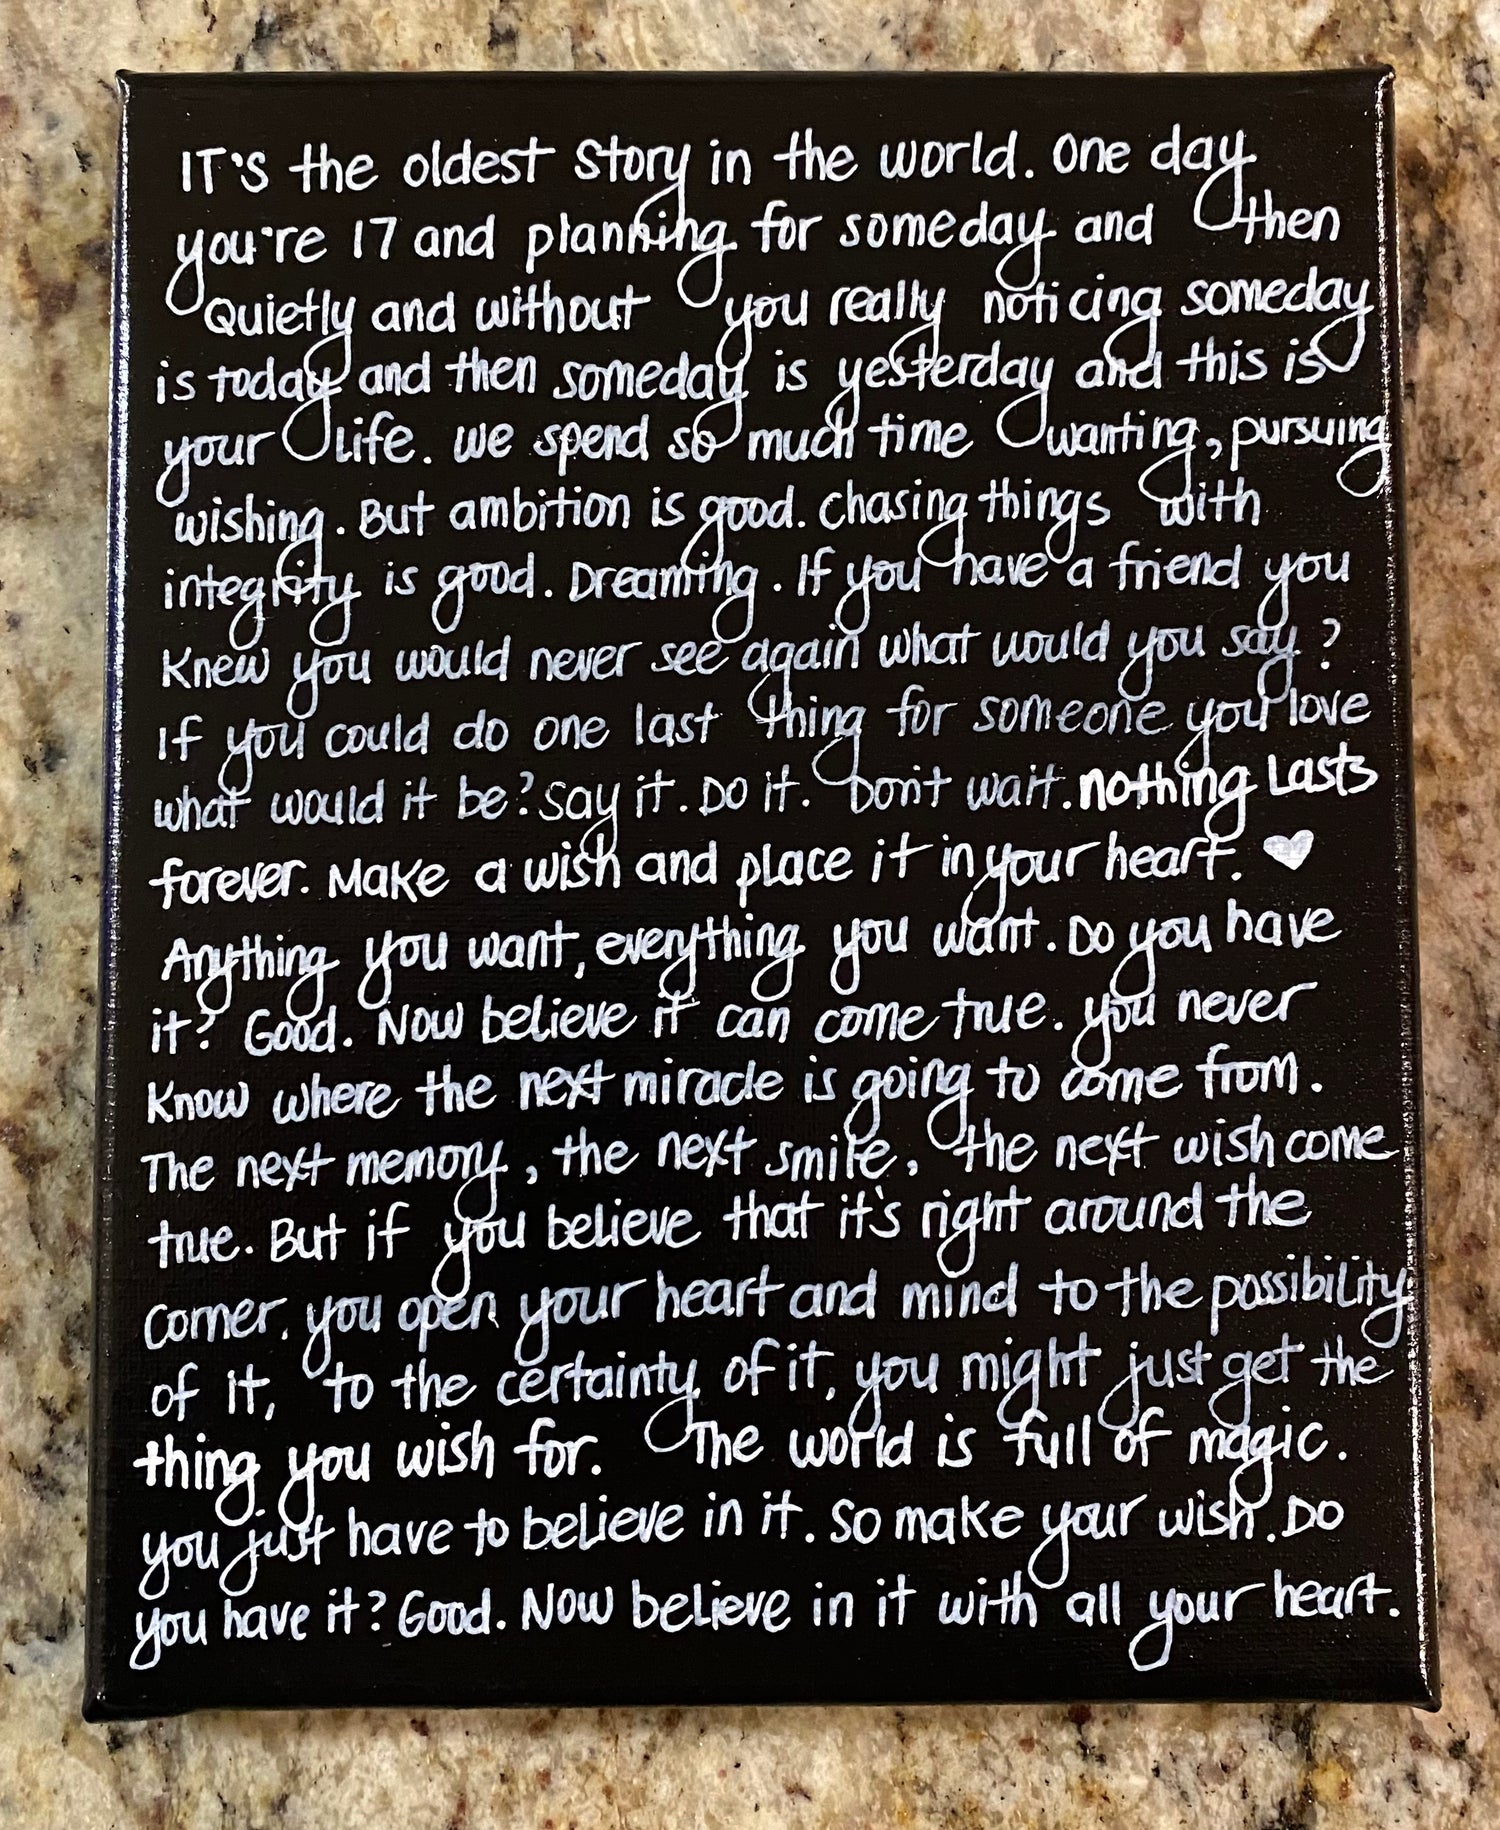 IT's the oldest story in the world. One day
you're 17 and planning for someday and then
Quietly and without you really noticing someday
is today and then someday is yesterday and this is
your life. we spend so much time wanting, pursuing
wishing. But ambition is good. chasing things with
integrity is good. Dreaming. If you have a friend you
Knew you would never see again what would you say?
If you could do one last thing for someone you love
what would it be? Say it. Do it. Don't wait. nothing Lasts
forever. Make a wish and place it in your heart. ♥
Anything you want, everything you want. Do you have
it? Good. Now believe it can come true. you never
Know where the next miracle is going to come from.
The next memory, the next smile, the next wish come
true. But if you believe that it's right around the
corner, you open your heart and mind to the possibility
of it, to the certainty of it, you might just get the
thing you wish for. The world is full of magic.
you just have to believe in it. So make your wish. Do
you have it? Good. Now believe in it with all your heart.